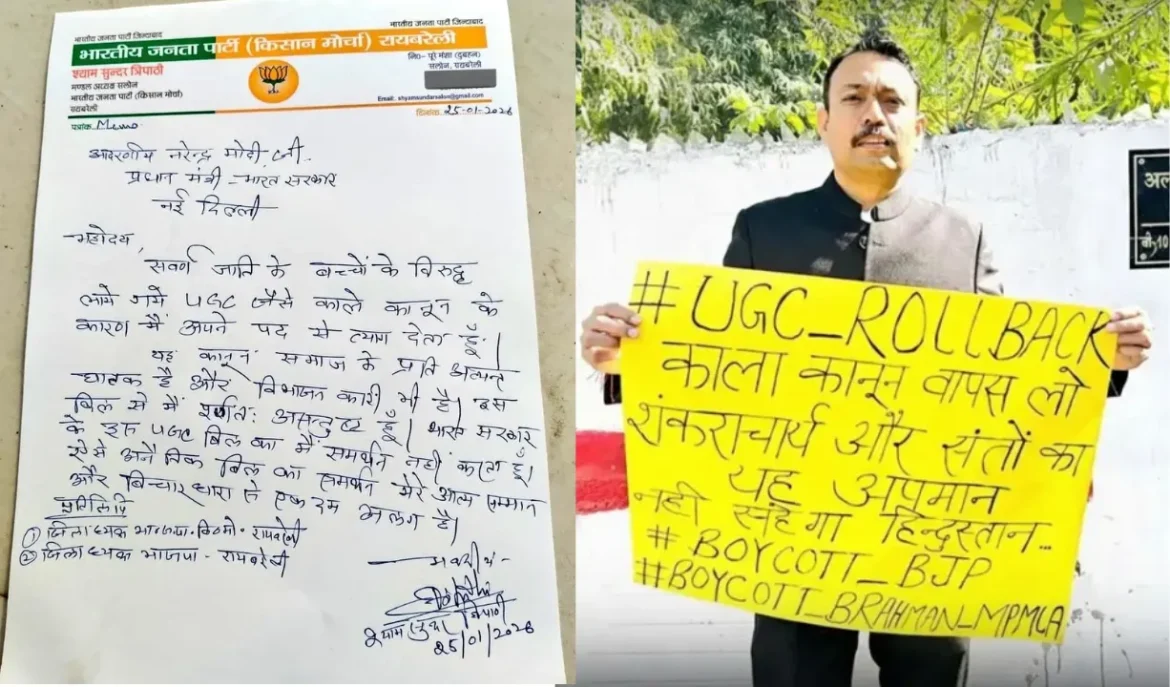 भारतीय जनता पार्टी जिन्दाबाद
भारतीय जनता पार्टी जिन्दाबाद
भारतीय जनता पार्टी (किसान मोर्चा) रायबरेली
श्याम सुन्दर त्रिपाठी
मण्डल अध्यक्ष सलोन
भारतीय जनता पार्टी (किसान मोर्चा)
रायबरेली
नि०- पूरे मंशा
सलोन, रायबरेली
Email:
पत्रांक Memo
दिनांक 25-01-2026
आदरणीय नरेन्द्र मोदी जी
प्रधान मंत्री - भारत सरकार
नई दिल्ली
महोदय,
सवर्ण जाति के बच्चों के विरुद्ध
लाये गये UGC जैसे काले कानून के
कारण मैं अपने पद से त्याग देता हूँ।
यह कानून समाज के प्रति अत्यन्त
घातक है और विभाजन कारी भी है। इस
बिल से मैं असन्तुष्ट हूँ। भारत सरकार
के इस UGC बिल का मैं समर्थन नहीं करता हूँ।
ऐसे अनैतिक बिल का समर्थन मेरे आत्म सम्मान
और विचार धारा से एक दम अलग है।
प्रतिलिपि
① जिलाध्यक्ष रायबरेली
② जिलाध्यक्ष भाजपा - रायबरेली
भवदीय -
श्याम सुन्दर त्रिपाठी
25/01/2026
#UGC_ROLLBACK
काला कानून वापस लो
शंकराचार्य और संतों का
यह अपमान
नही सहेगा हिन्दुस्तान...
#BOYCOTT_BJP
#BOYCOTT_BRAHMAN_MPMLA